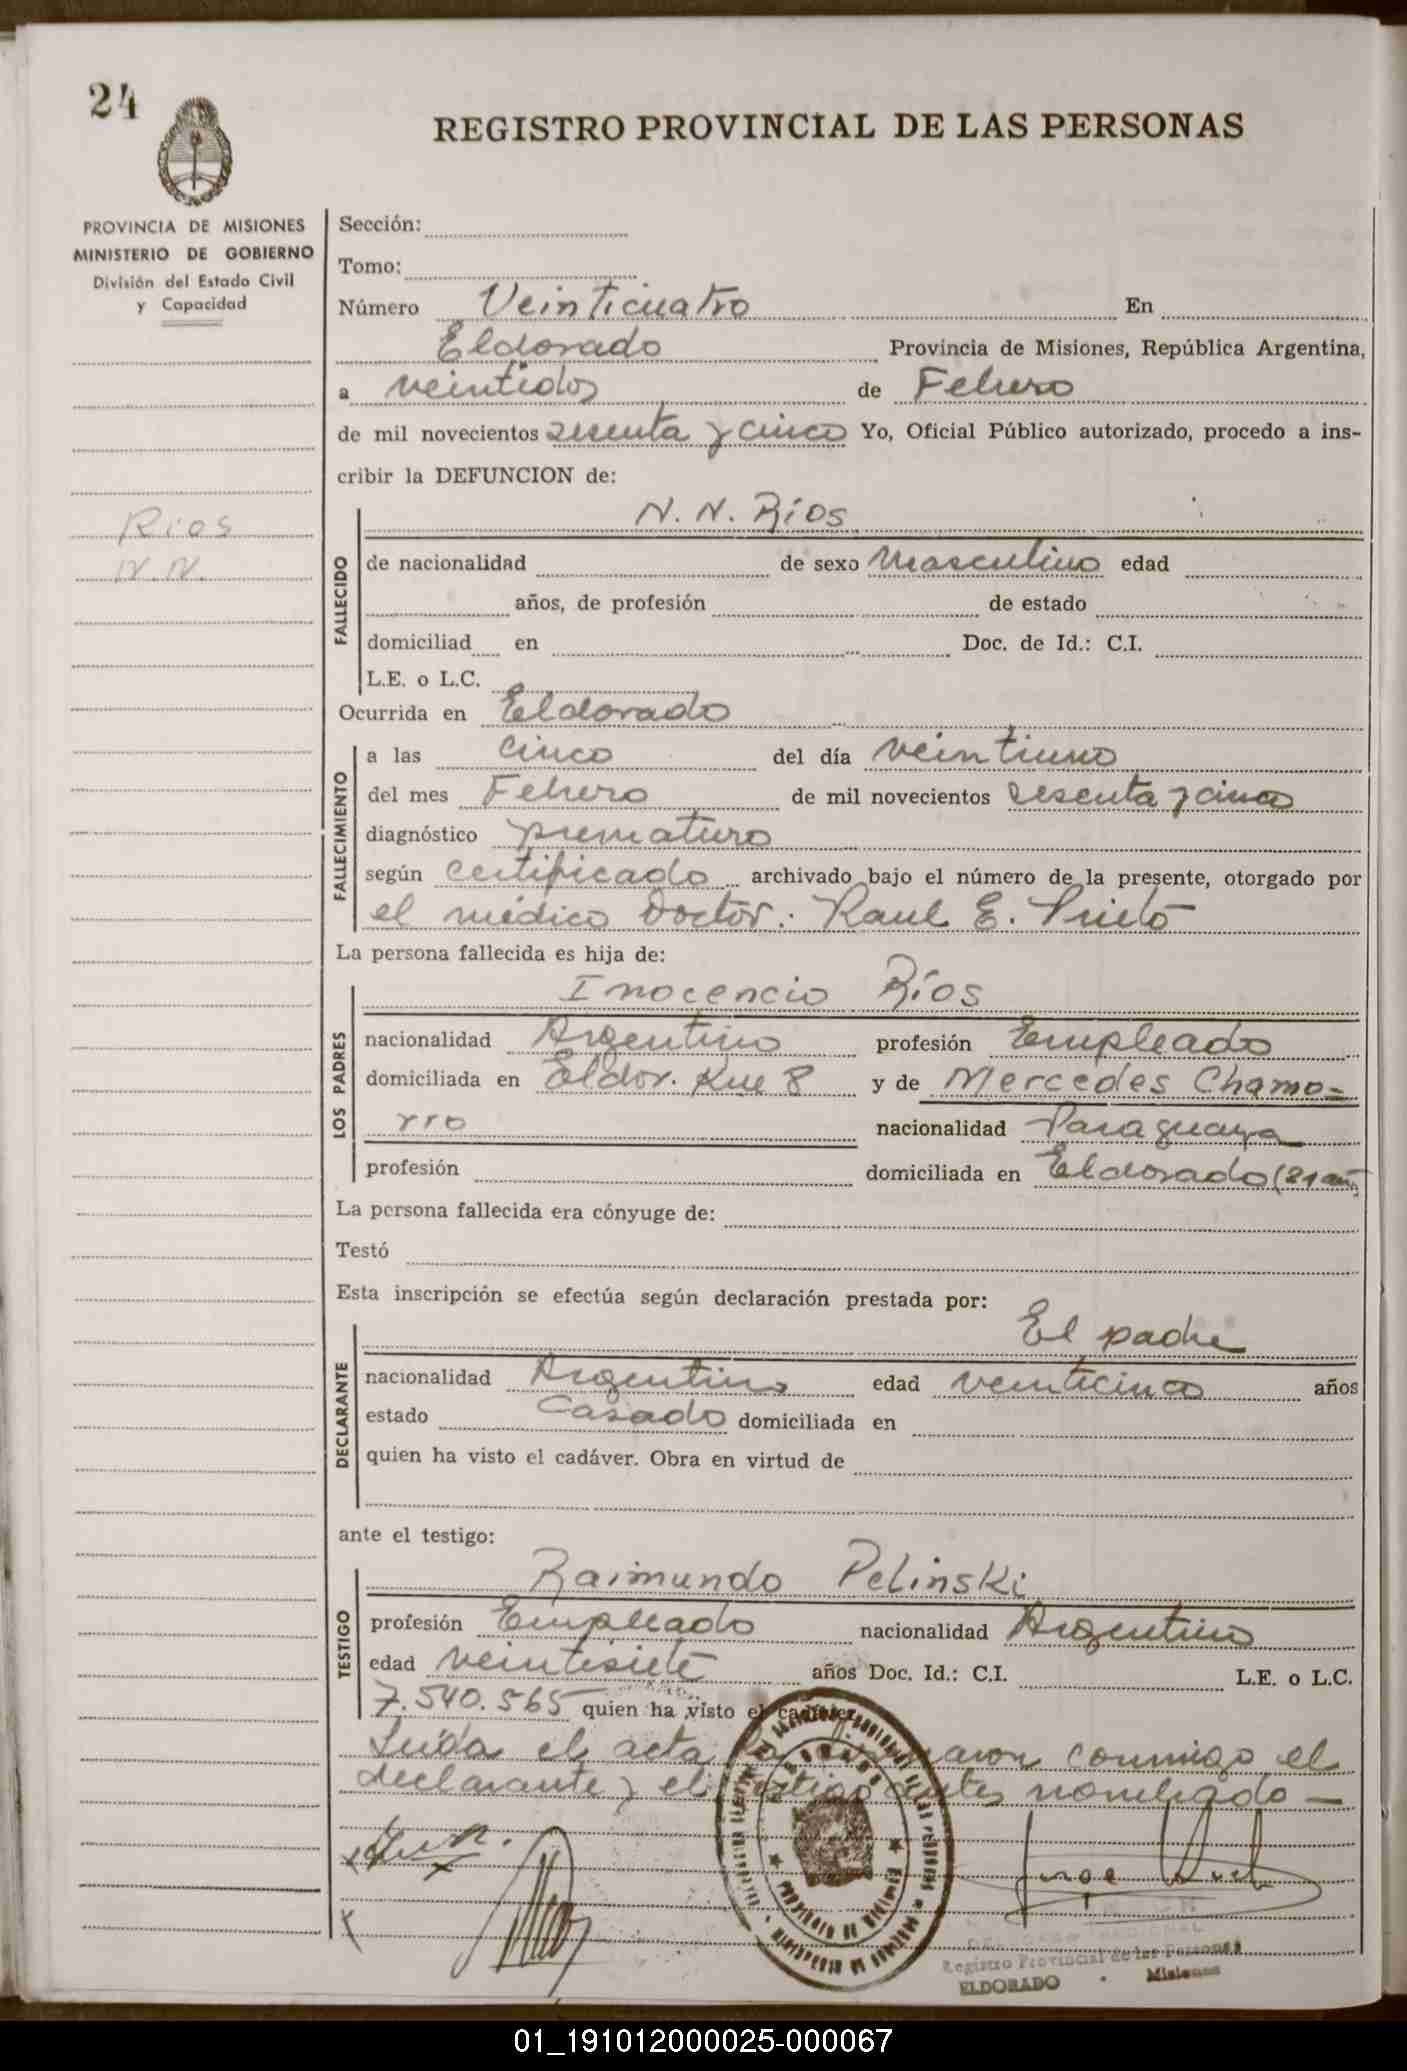 24
REGISTRO PROVINCIAL DE LAS PERSONAS
PROVINCIA DE MISIONES
MINISTERIO DE GOBIERNO
División del Estado Civil
y Capacidad
Rios
N.N.
Sección:
Tomo:
Número Veinticuatro En
Eldorado Provincia de Misiones, República Argentina,
a veintidos de Febrero
de mil novecientos sesenta y cinco Yo, Oficial Público autorizado, procedo a ins-
cribir la DEFUNCION de:
FALLECIDO
N. N. Ríos
de nacionalidad de sexo Masculino edad
años, de profesión de estado
domiciliad en Doc. de Id.: C.I.
L.E. o L.C.
Ocurrida en Eldorado
FALLECIMIENTO
a las cinco del día veintiuno
del mes Febrero de mil novecientos sesenta y cinco
diagnóstico prematuro
según certificado archivado bajo el número de la presente, otorgado por
el médico Doctor: Raul E. Prieto
La persona fallecida es hija de:
LOS PADRES
Inocencio Ríos
nacionalidad Argentino profesión Empleado
domiciliada en Eldor. Km 8 y de Mercedes Chamo-
rro nacionalidad Paraguaya
profesión domiciliada en Eldorado (21 añ
La persona fallecida era cónyuge de:
Testó
Esta inscripción se efectúa según declaración prestada por:
DECLARANTE
El padre
nacionalidad Argentino edad veinticinco años
estado Casado domiciliada en
quien ha visto el cadáver. Obra en virtud de
ante el testigo:
TESTIGO
Raimundo Pelinski
profesión Empleado nacionalidad Argentino
edad veintisiete años Doc. Id.: C.I. L.E. o L.C.
7.540.565 quien ha visto el cadáver.
Leída el acta la firmaron conmigo el
declarante y el testigo antes nombrado —
Jorge
Registro Provincial de las Personas
ELDORADO Misiones
01_191012000025-000067